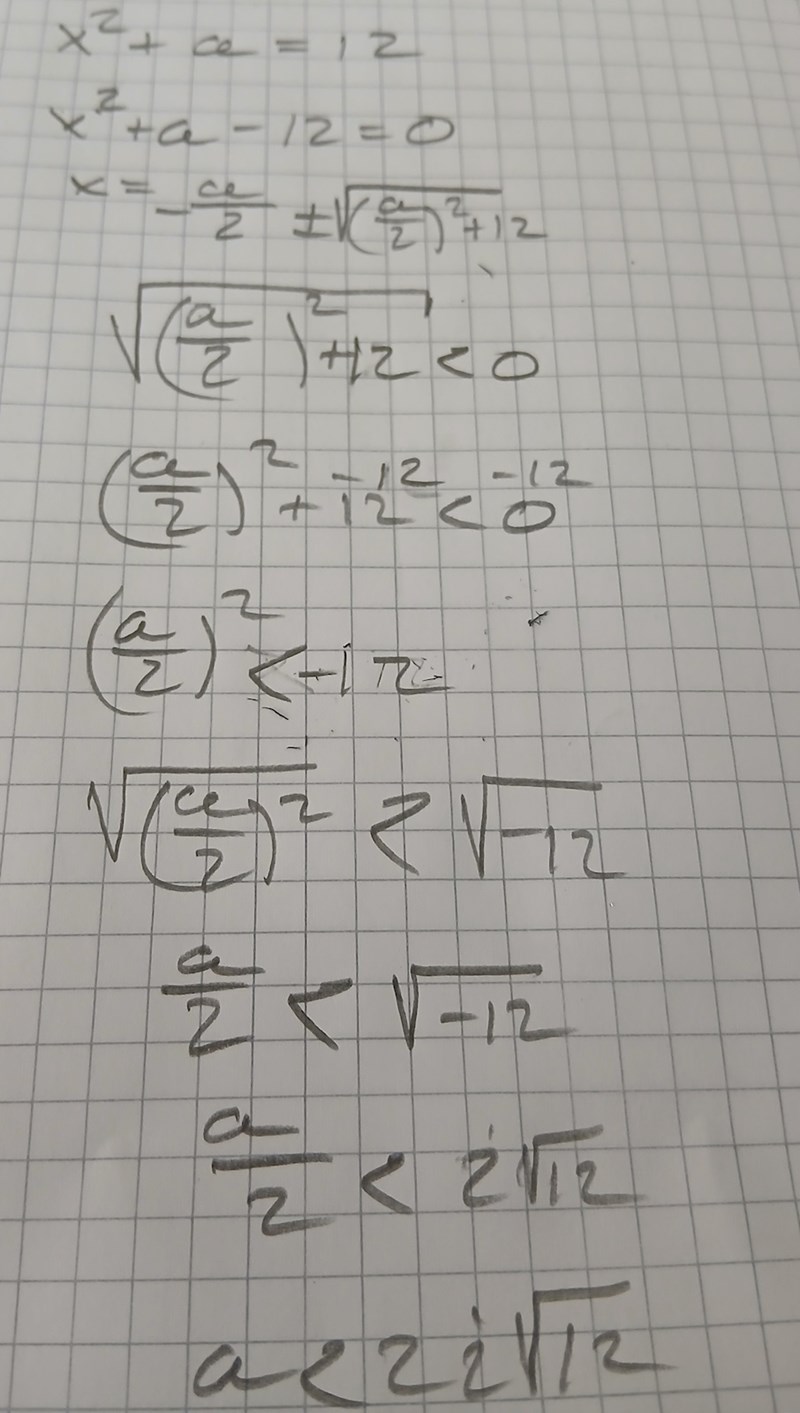 x² + a = 12
x² + a - 12 = 0
x = -a/2 ± √((a/2)² + 12)
√((a/2)² + 12) < 0
(a/2)² + 12 -12 < 0 -12
(a/2)² < -12
√((a/2)²) < √(-12)
a/2 < √(-12)
a/2 < i√12
a < 2i√12